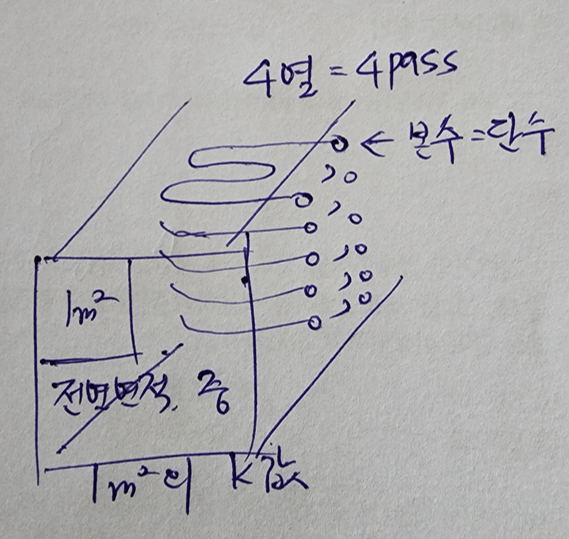 4열 = 4pass
← 본수 = 단수
1m²
전면면적. 중
1m²의 K값